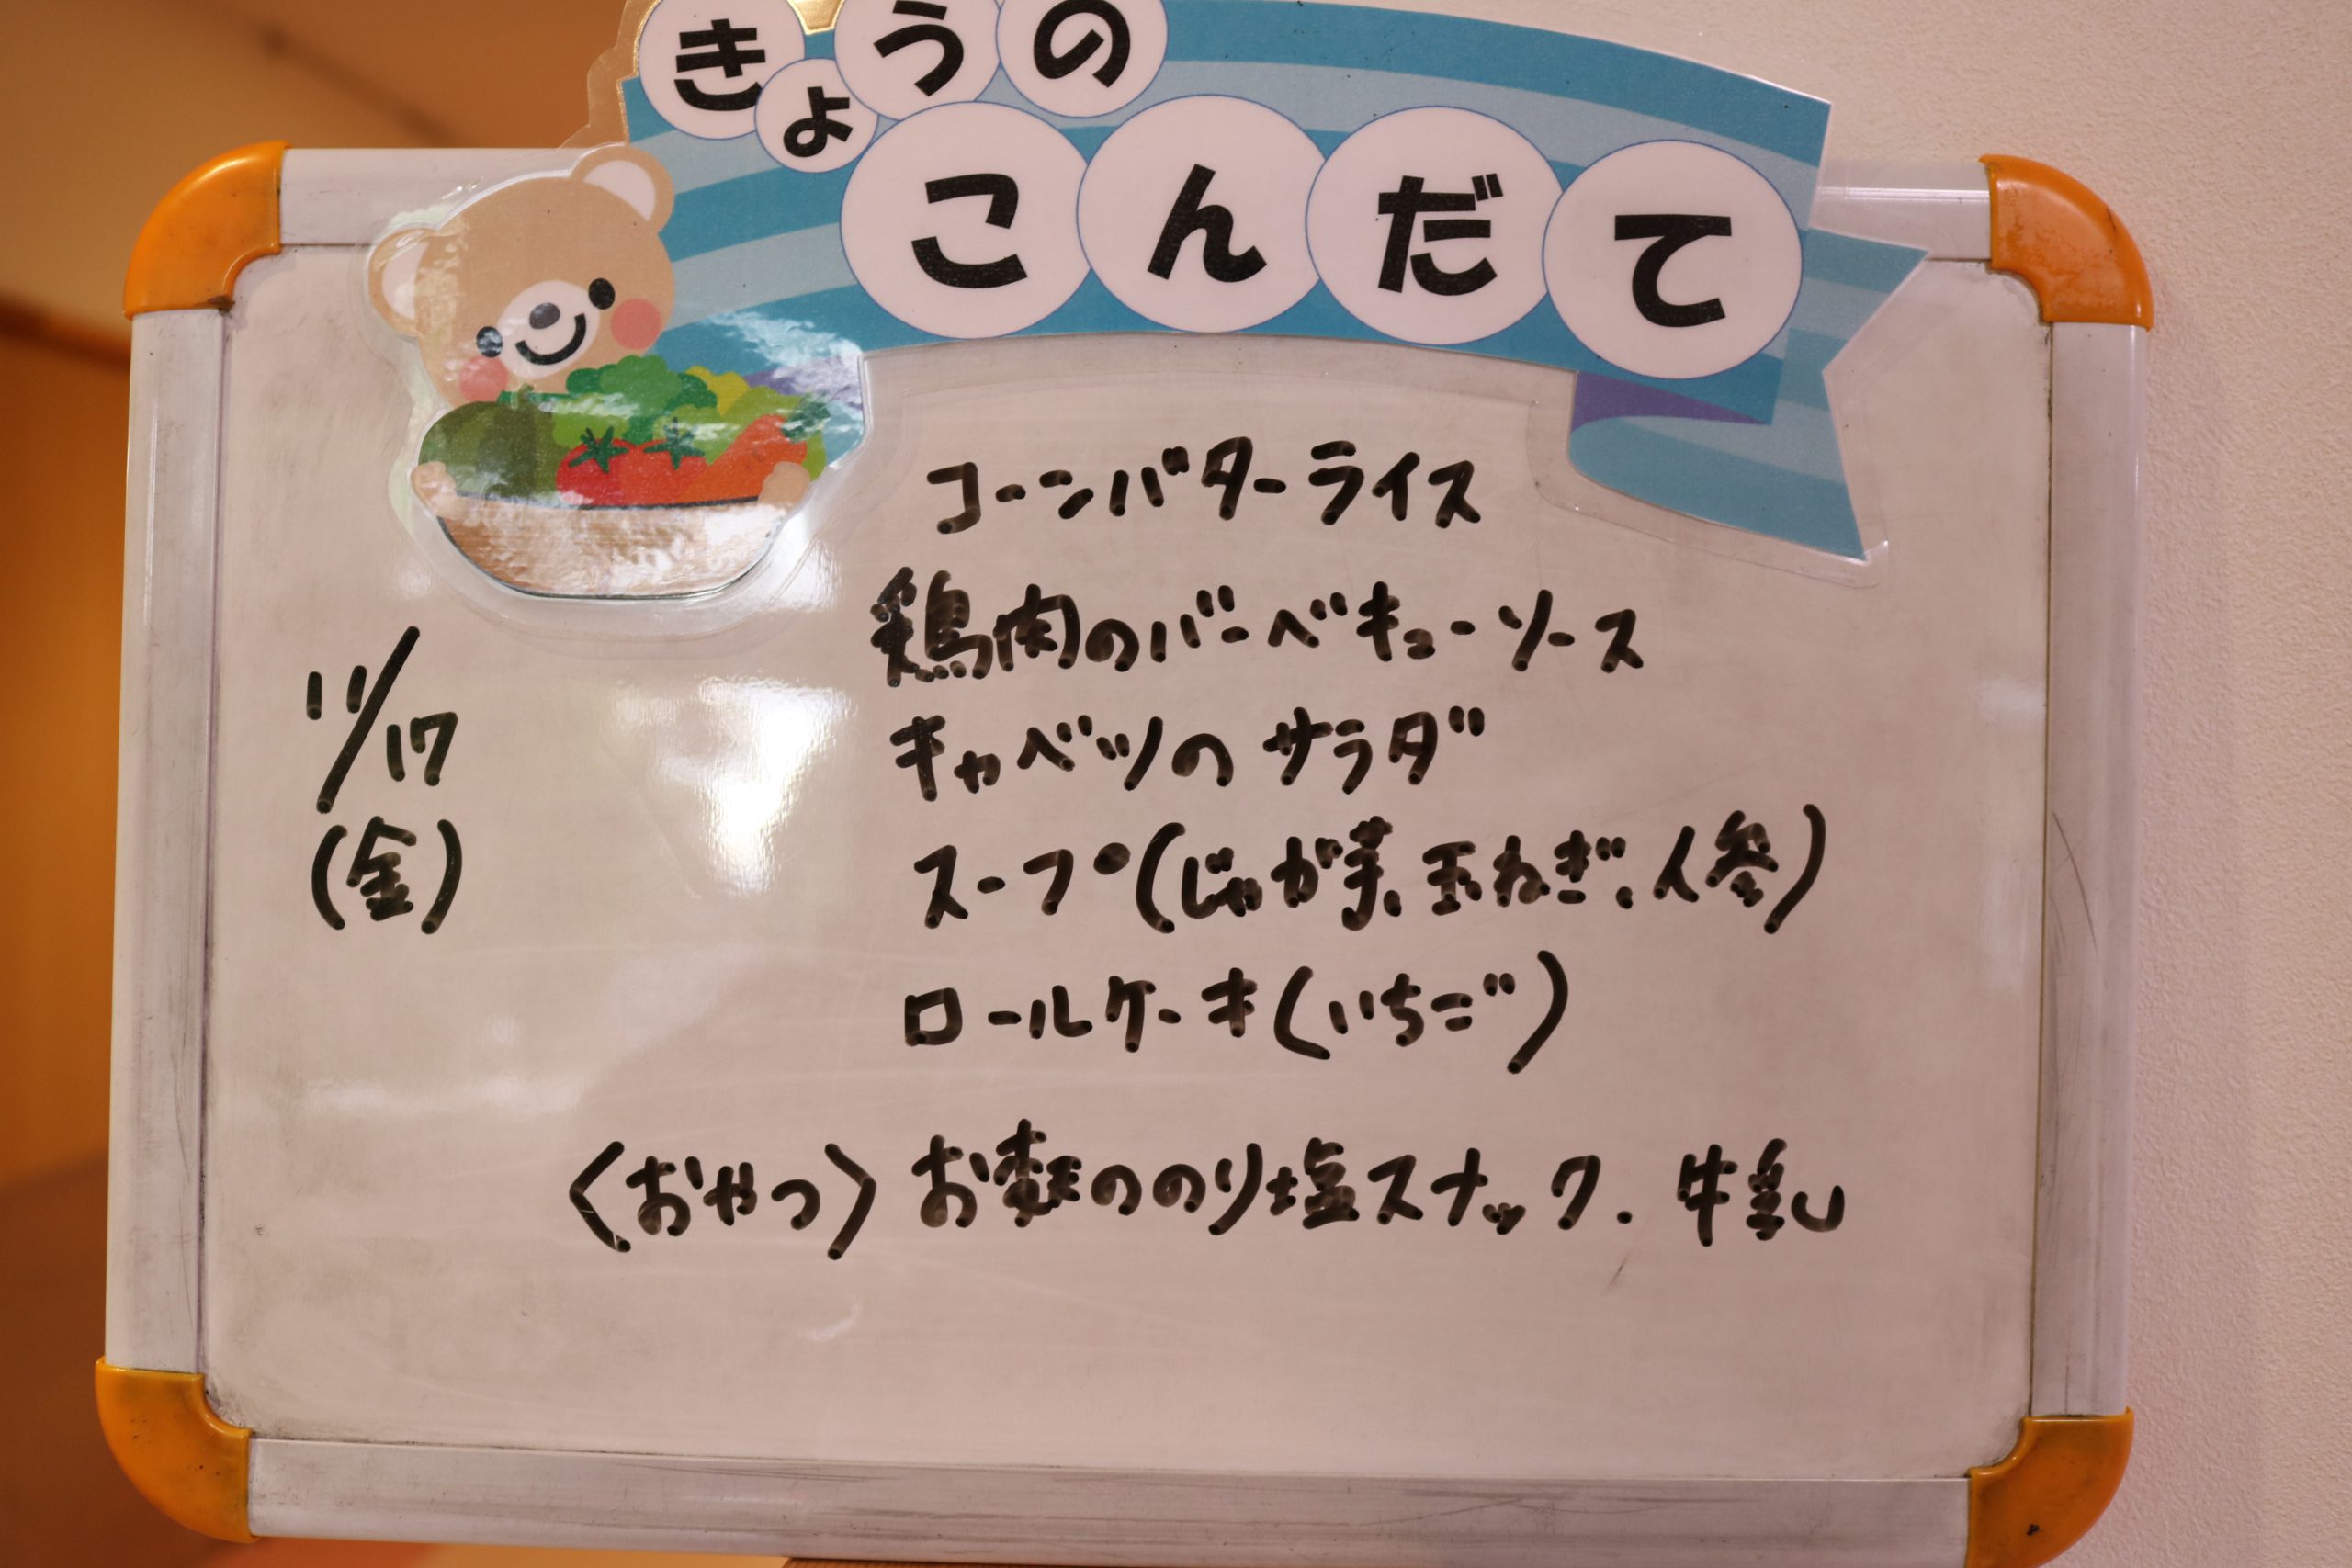 きょうの
こんだて
コーンバターライス
鶏肉のバーベキューソース
キャベツのサラダ
スープ(じゃが芋、玉ねぎ、人参)
ロールケーキ(いちご)
11/17
(金)
〈おやつ〉お麩ののり塩スナック. 牛乳